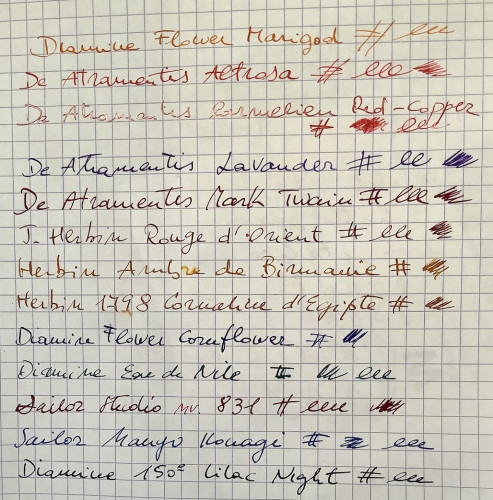 Diamine Flower Marigod # eee
De Atramentis Altrosa # eee
De Atramentis Carmelien Red-Copper
# eee
De Atramentis Lavander # ee
De Atramentis Mark Twain # eee
J. Herbin Rouge d'Orient # eee
Herbin Ambre de Birmanie #
Herbin 1798 Cornaline d'Egipte #
Diamine Flower Cornflower #
Diamine Eau de Nile # eee
Sailor Studio nv. 831 # eee
Sailor Manyo Konagi # eee
Diamine 150º Lilac Night # eee